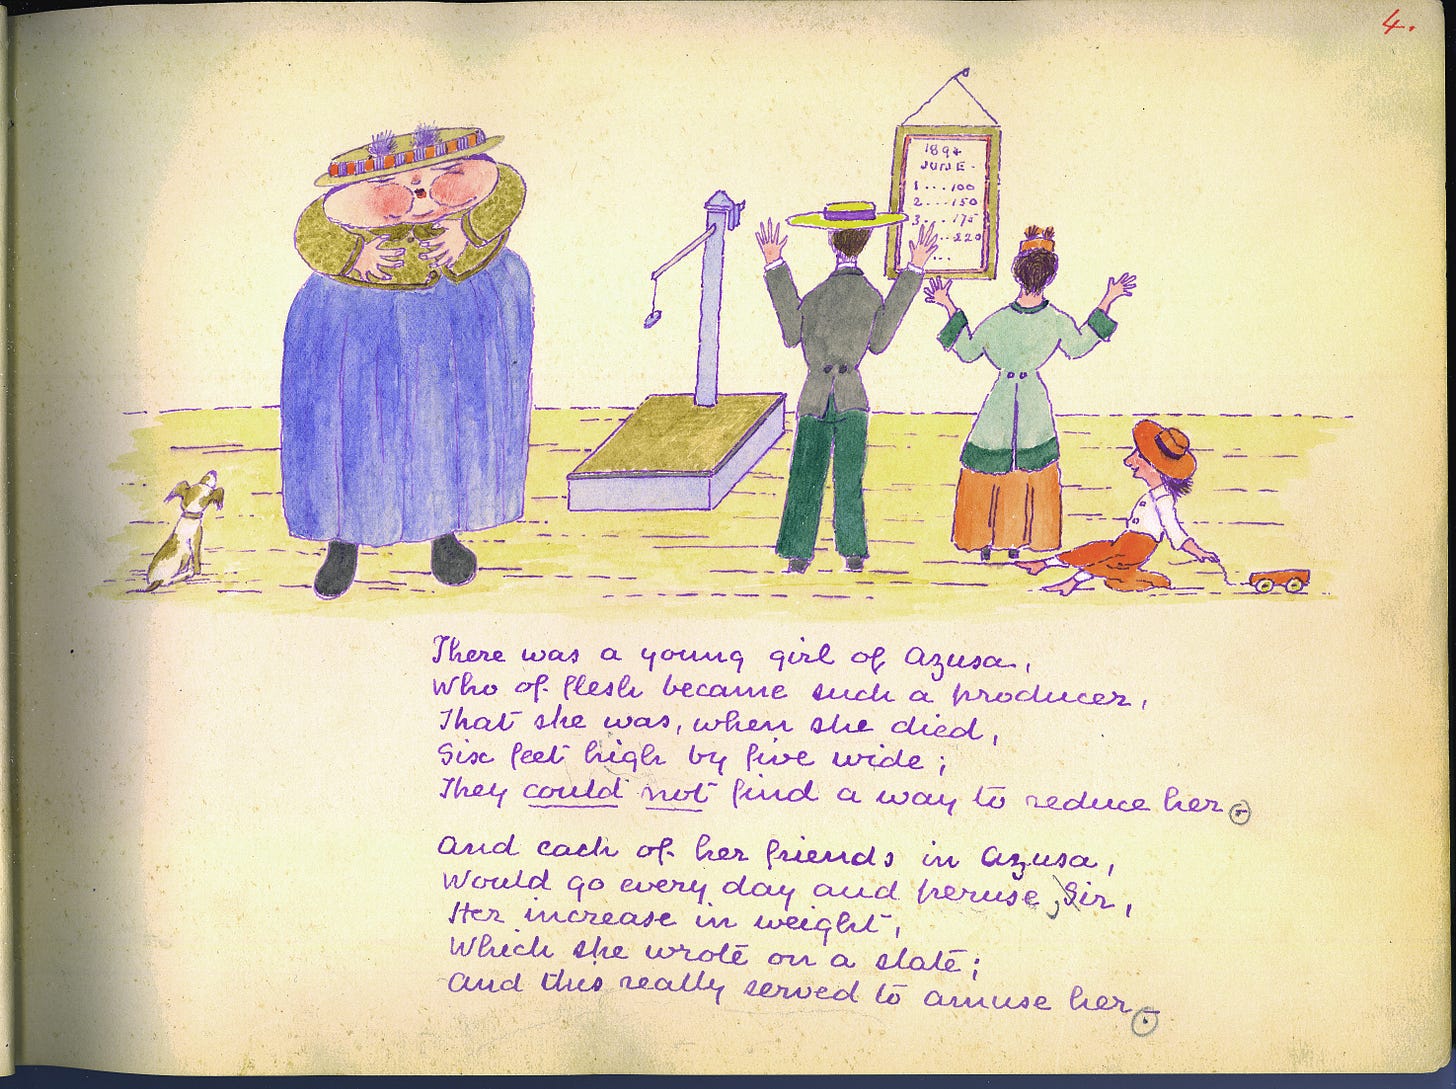 4.
1894
JUNE.
1...100
2...150
3...175
..220
...
There was a young girl of Azusa,
Who of flesh became such a producer,
That she was, when she died,
Six feet high by five wide;
They could not find a way to reduce her.
And each of her friends in Azusa,
Would go every day and peruse, Sir,
Her increase in weight,
Which she wrote on a slate;
And this really served to amuse her.